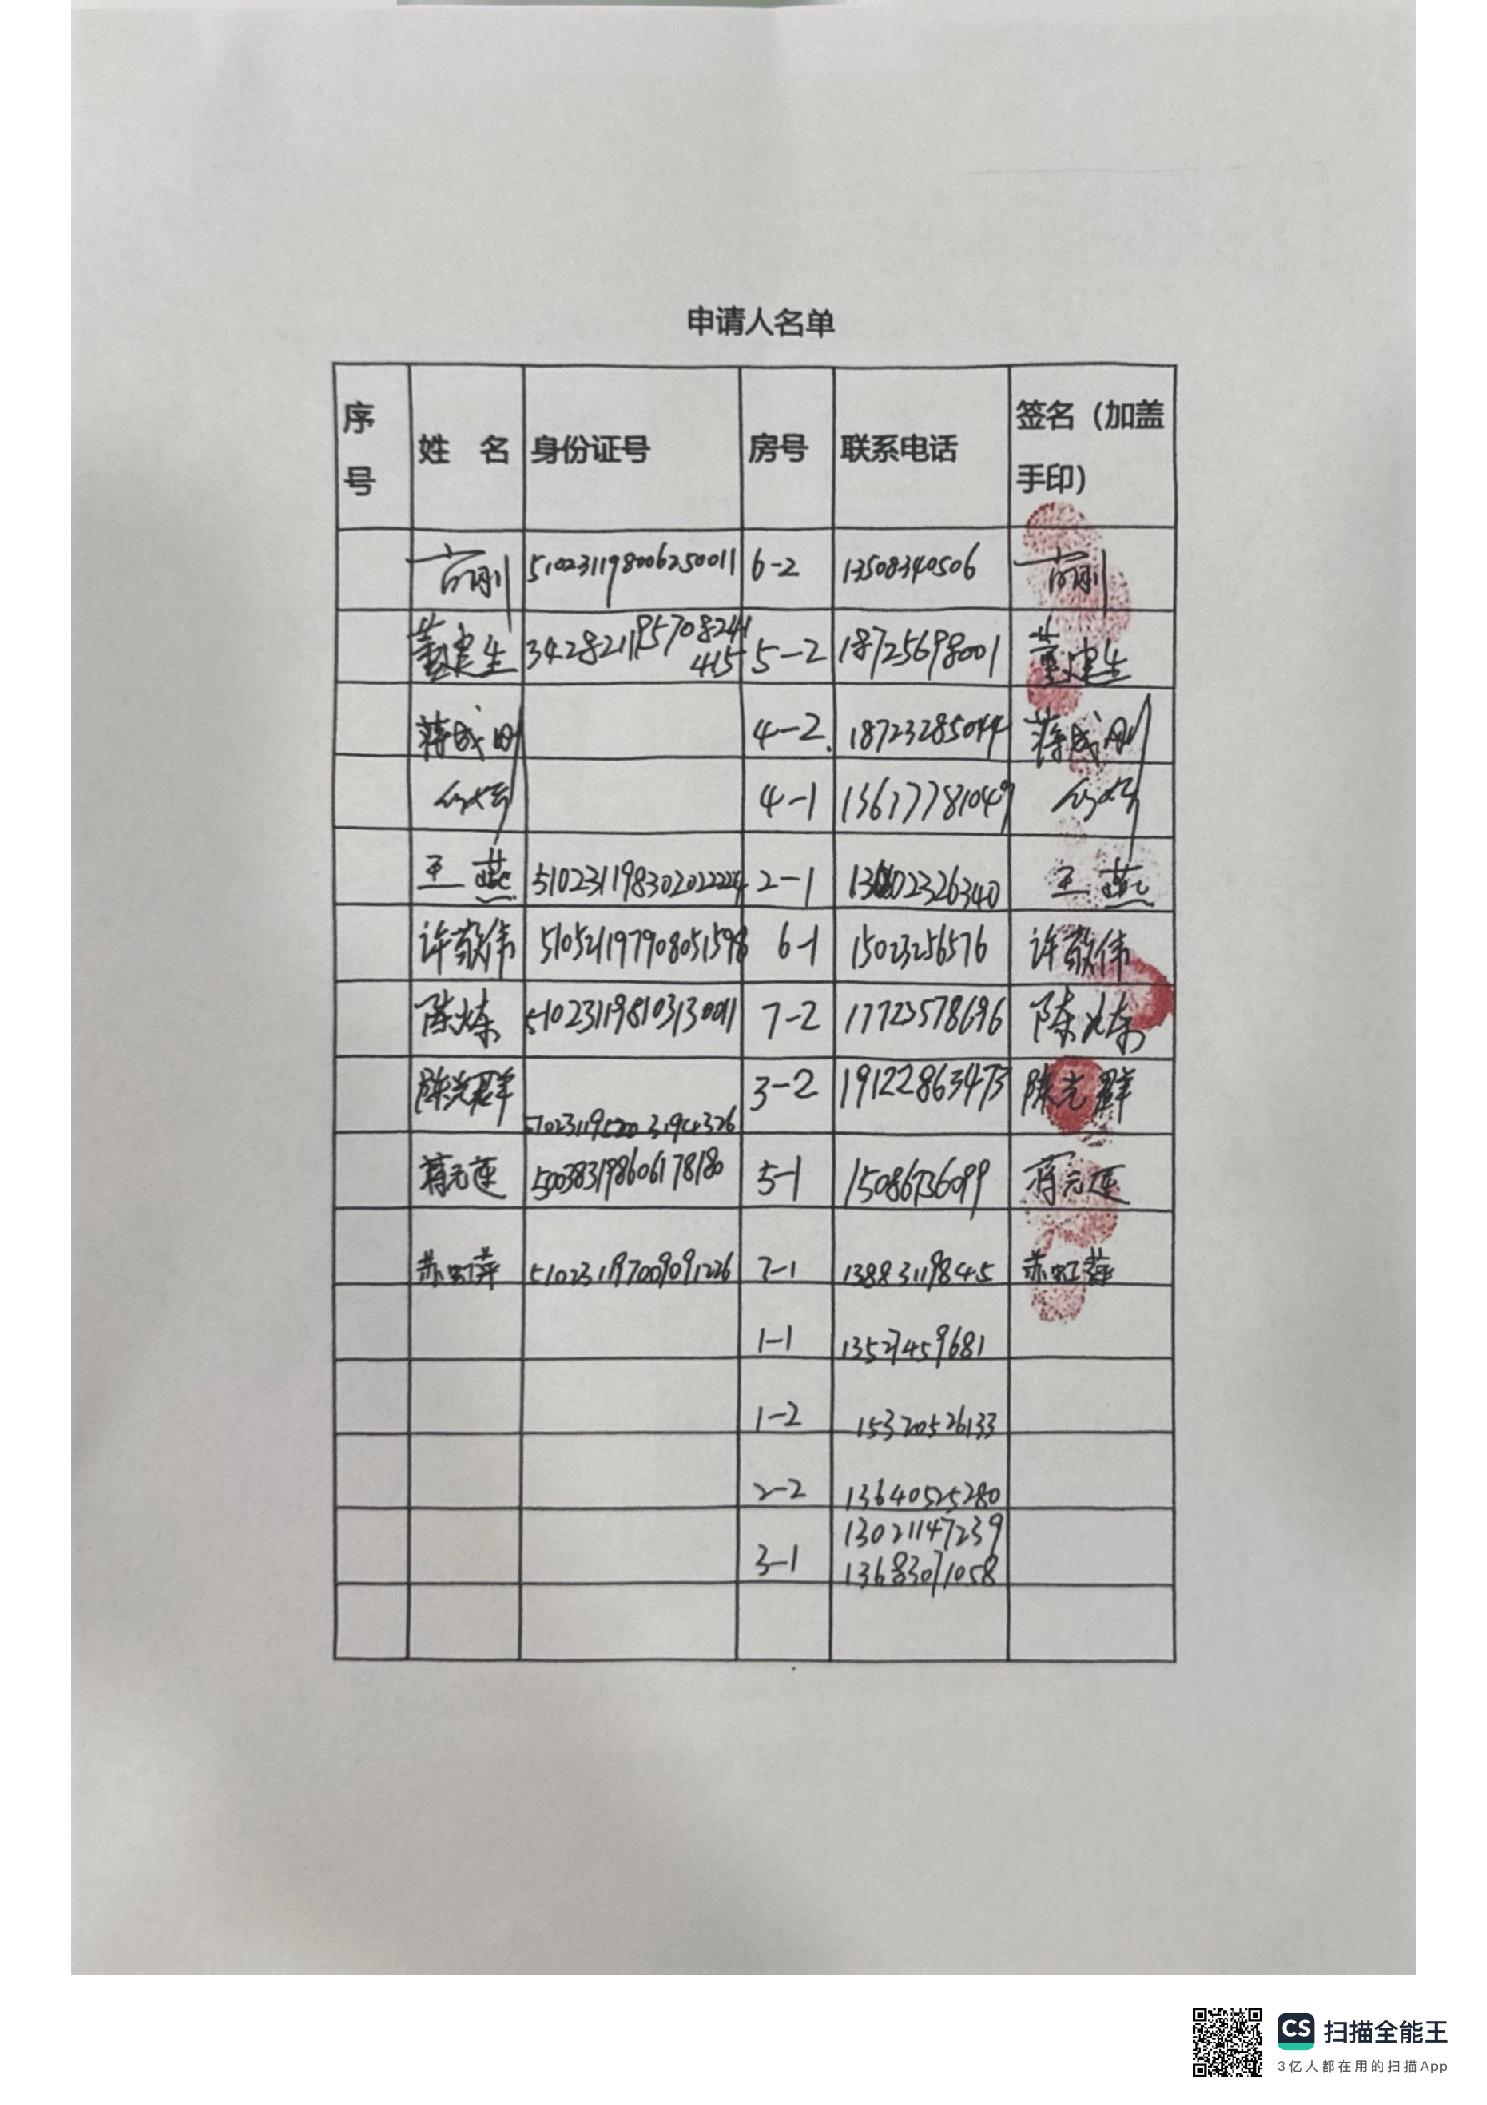 申请人名单
序号 姓 名 身份证号 房号 联系电话 签名（加盖手印）
510231198006250011 6-2 13508340506
董建生 342821195708244415 5-2 18725698001 董建生
蒋成刚 4-2 18723285044 蒋成刚
4-1 13617781049
王燕 2-1 王燕
许敬伟 6-1 15023256576 许敬伟
陈炼 510231198103130011 7-2 17723578696 陈炼
陈光群 3-2 19122863473 陈光群
蒋元莲 500383198606178180 5-1 15086736099 蒋元莲
苏虹萍 510231197009091226 7-1 13883119845 苏虹萍
1-1 13527459681
1-2 15320526133
2-2 13640525280
3-1 13021147239
13683071058
CS 扫描全能王
3亿人都在用的扫描App